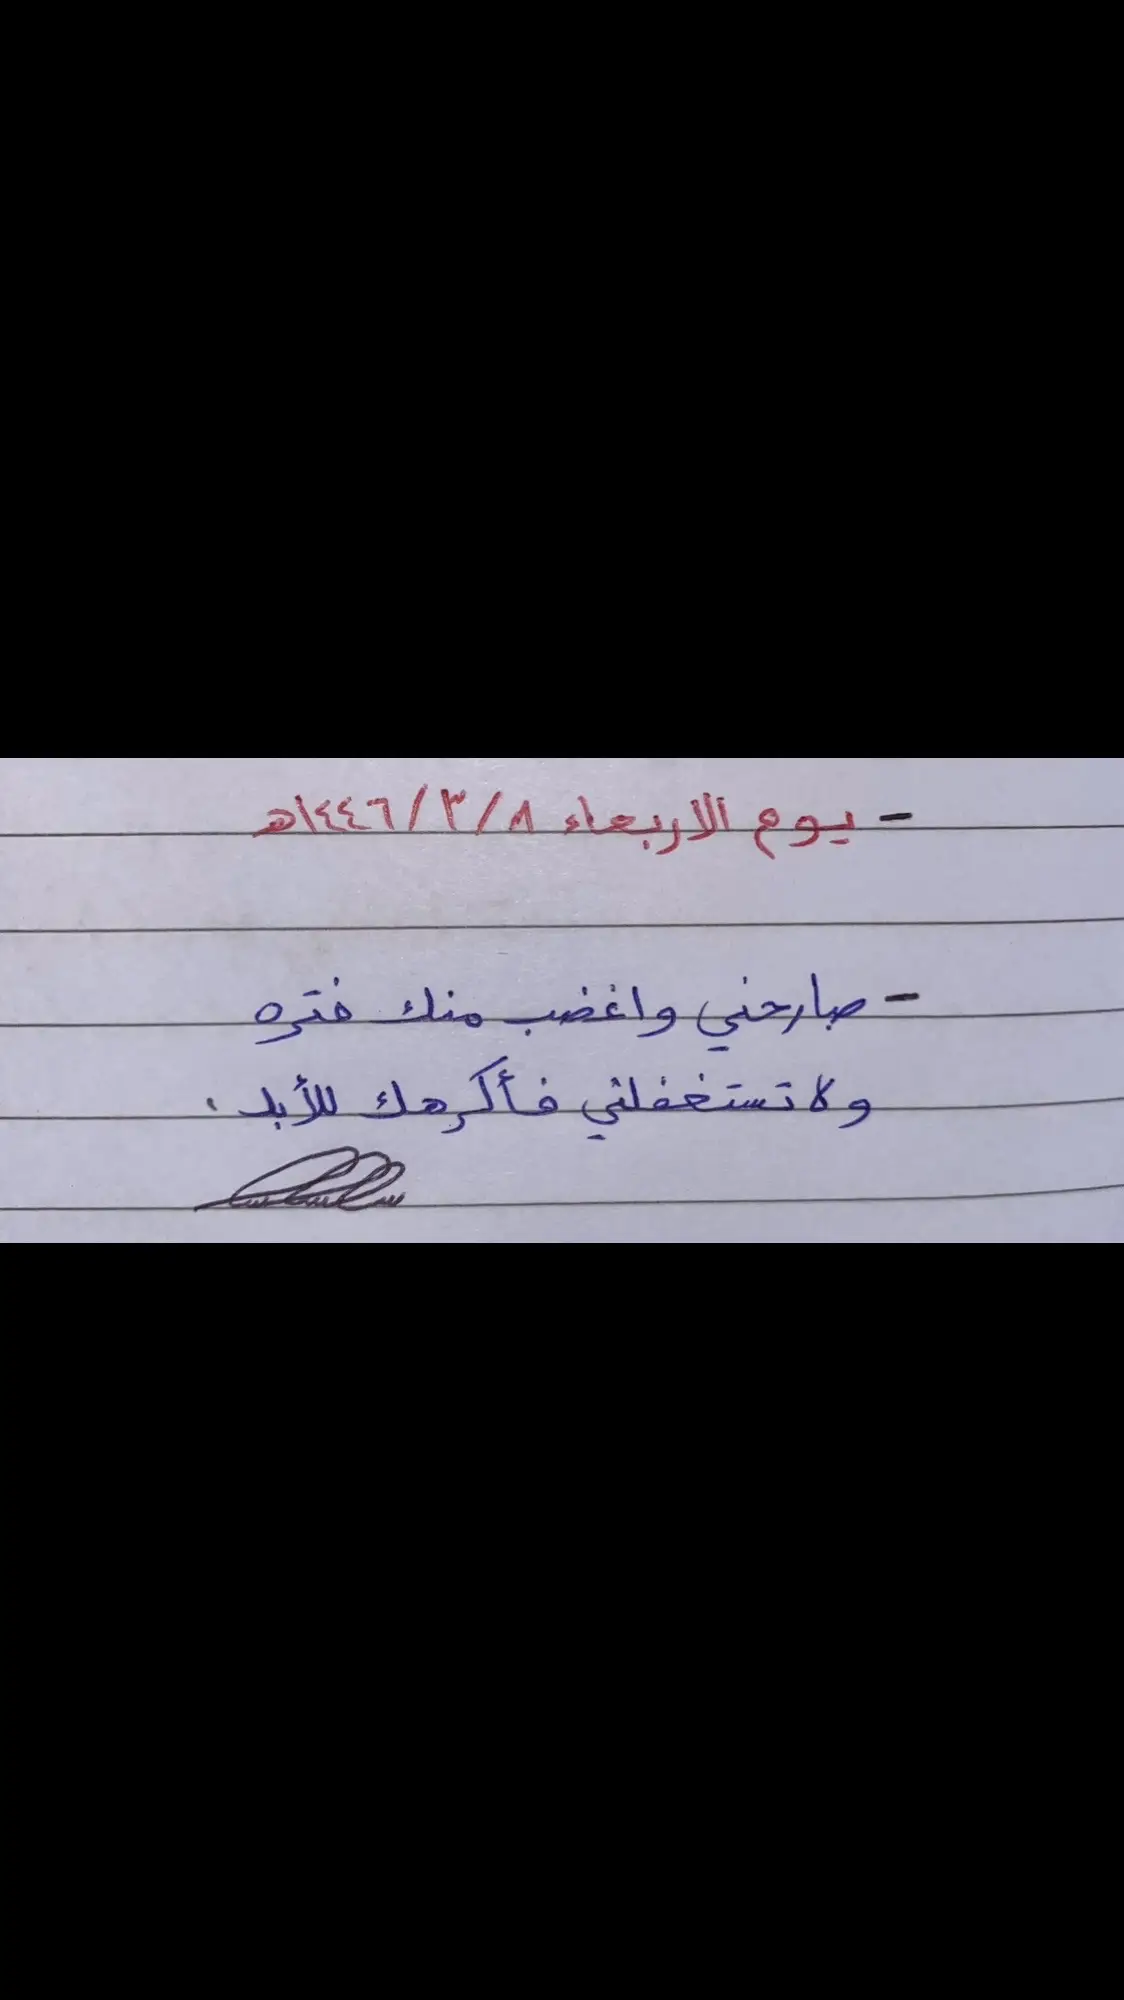 - يوم الاربعاء ٨/٣/١٤٤٦هـ
- صارحني واغضب منك فتره
ولا تستغفلني فأكرهك للأبد .